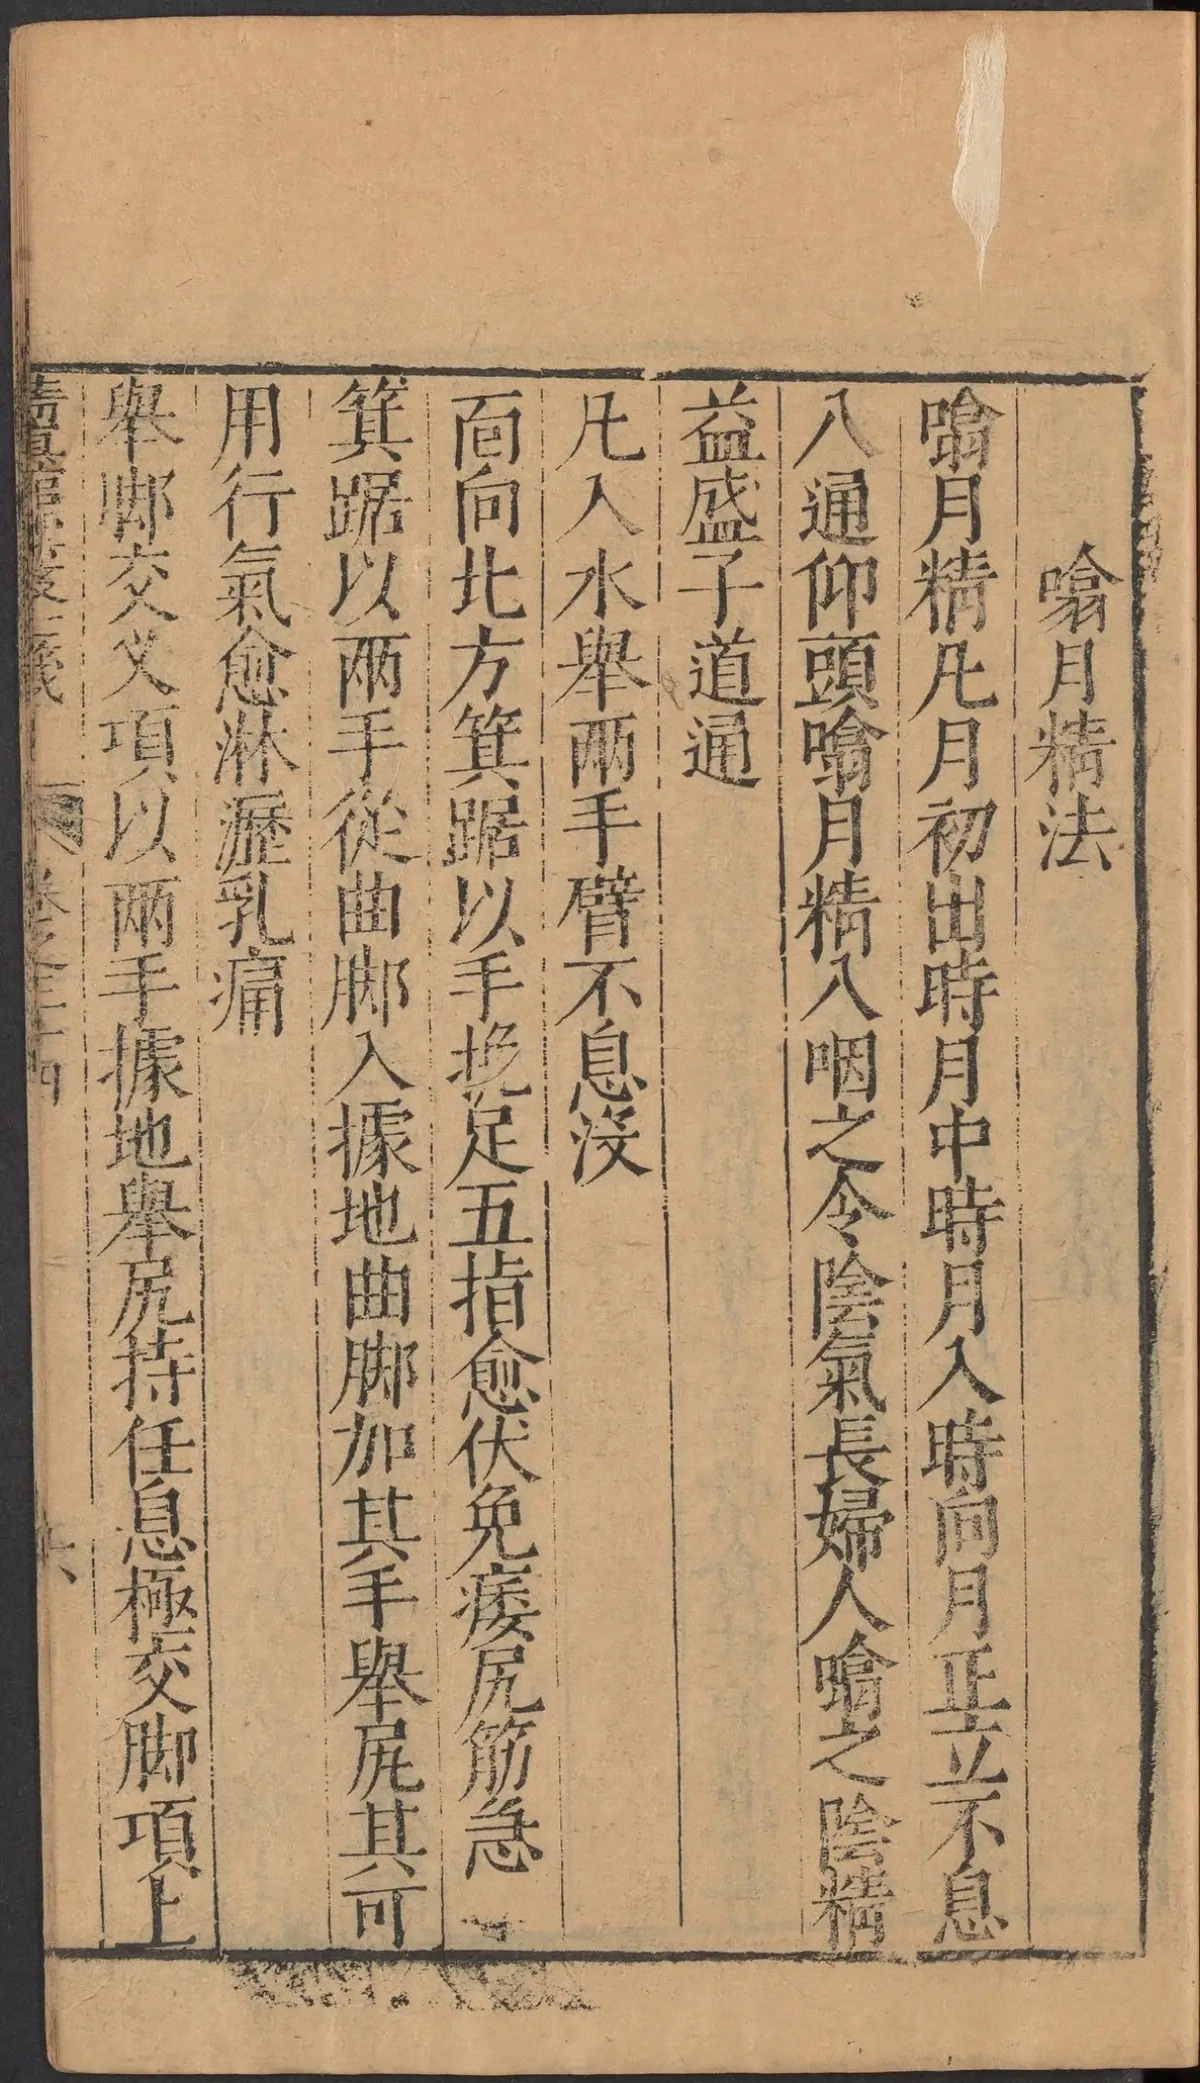 噏月精法
噏月精凡月初出時月中時月入時向月正立不息
八通仰頭噏月精八咽之令陰氣長婦人噏之陰精
益盛子道通
凡入水舉兩手臂不息沒
面向北方箕踞以手挽足五指愈伏免痿尻筋急
箕踞以兩手從曲脚入據地曲脚加其手舉尻其可
用行氣愈淋瀝乳痛
舉脚交叉項以兩手據地舉尻持任息極交脚項上
卷之三十四
六